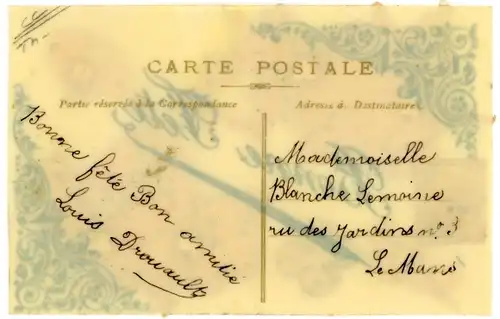 CARTE POSTALE
Partie réservée à la Correspondance
Adresse du Destinataire
Bonne fête Bon amitié
Louis Drouault
Mademoiselle
Blanche Lemoine
ru des Jardins n° 3
Le Mans